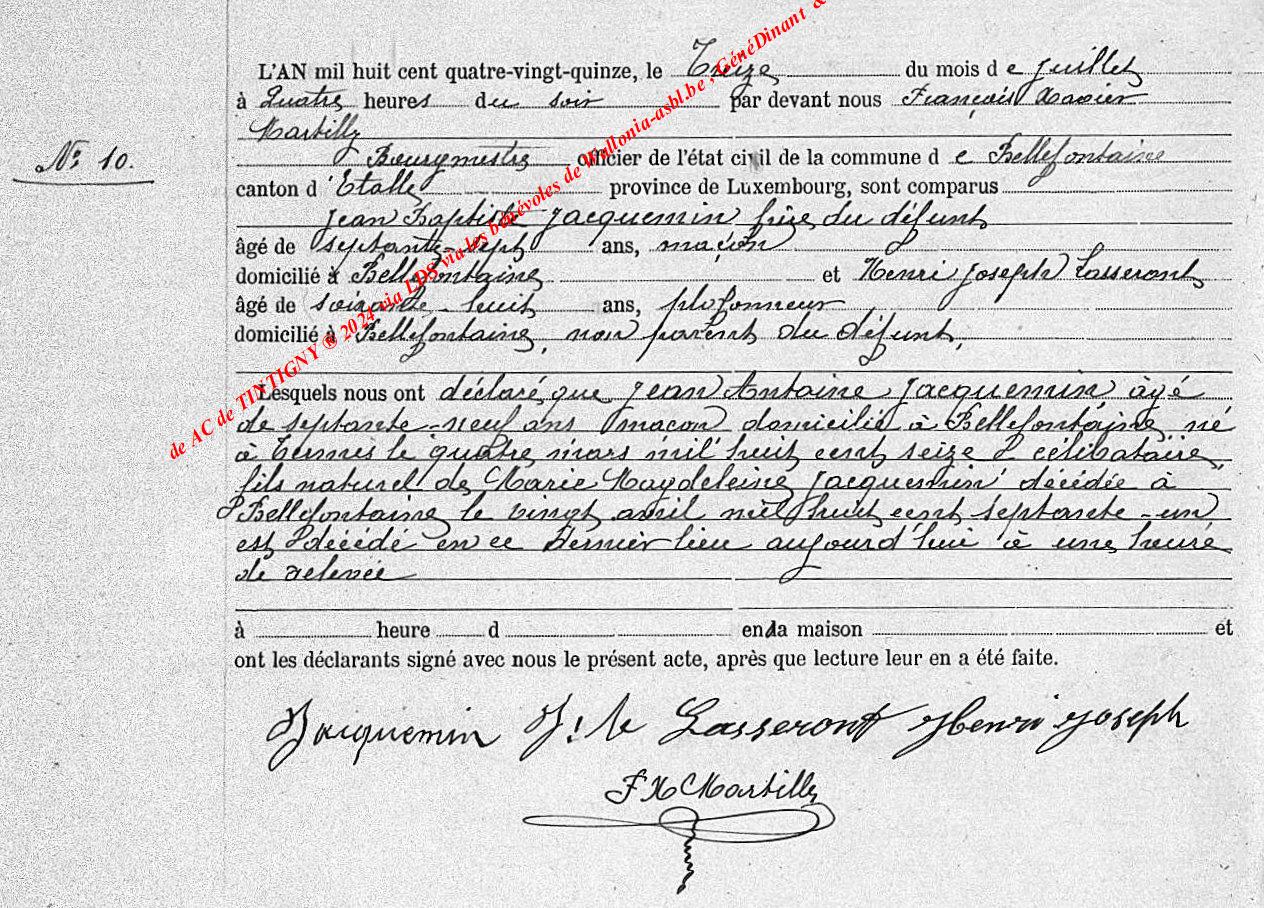 L'AN mil huit cent quatre-vingt-quinze, le Treize du mois de juillet
à Quatre heures du soir par devant nous François Xavier
Martilly
N° 10.
Bourgmestre officier de l'état civil de la commune de Bellefontaine
canton d'Etalle province de Luxembourg, sont comparus
Jean Baptiste Jacquemin frère du défunt
âgé de septante-sept ans, maçon
domicilié à Bellefontaine et Henri Joseph Lasseront
âgé de soixante-huit ans, plafonneur
domicilié à Bellefontaine, non parent du défunt,
Lesquels nous ont déclaré que Jean Antoine Jacquemin âgé
de septante-neuf ans maçon domicilié à Bellefontaine né
à Termes le quatre mars mil huit cent seize célibataire,
fils naturel de Marie Magdeleine Jacquemin décédée à
Bellefontaine le vingt avril mil huit cent septante-un
est décédé en ce dernier lieu aujourd'hui à une heure
de relevée
à heure d en la maison et
ont les déclarants signé avec nous le présent acte, après que lecture leur en a été faite.
Jacquemin J. B Lasseront Henri Joseph
F X Martilly
de AC de TINTIGNY ® 2024 via LDS via les bénévoles de Wallonia-asbl.be, GénéDinant &